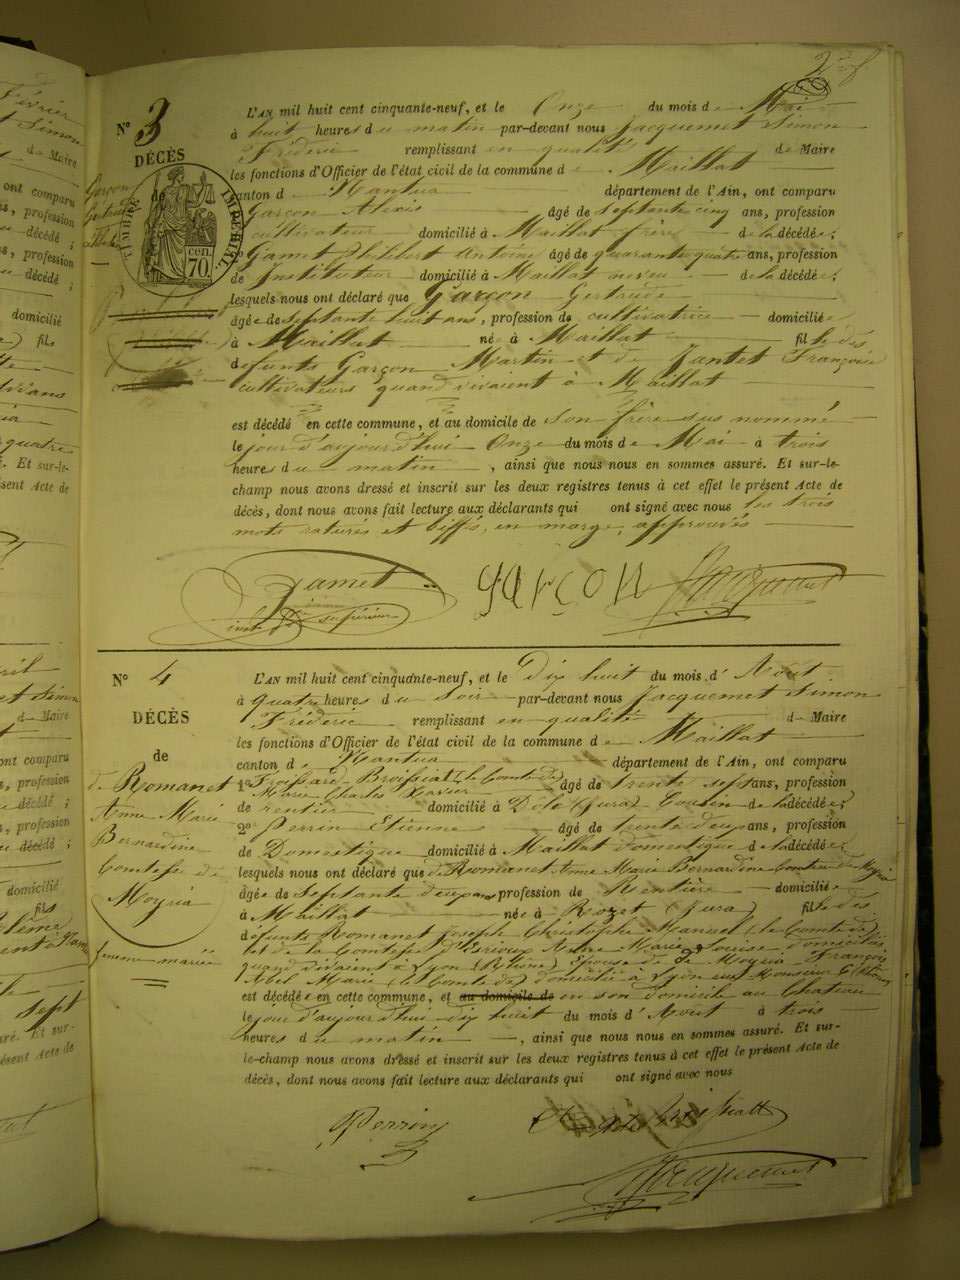 N° 3
DÉCÈS
de
Garçon
Gertrude
célibataire
TIMBRE IMPÉRIAL
70 cen.
L'AN mil huit cent cinquante-neuf, et le Onze du mois de Mai
à huit heures du matin par-devant nous Jacquemet Simon
Fréderic remplissant en qualité de Maire
les fonctions d'Officier de l'état civil de la commune de Maillat
canton de Nantua département de l'Ain, ont comparu
Garçon Alexis âgé de septante cinq ans, profession
cultivateur domicilié à Maillat frère de la décédée;
2° Gamet Philibert Antoine âgé de quarante quatre ans, profession
de Instituteur domicilié à Maillat neveu de la décédée,
lesquels nous ont déclaré que Garçon Gertrude
âgée de septante huit ans, profession de cultivatrice domiciliée
à Maillat née à Maillat fille des
défunts Garçon Martin et de Jantet Françoise
cultivateurs quand vivaient à Maillat
est décédé en cette commune, et au domicile de son frère sus nommé
le jour d'aujourd'hui Onze du mois de Mai à trois
heures du matin, ainsi que nous nous en sommes assuré. Et sur-le-
champ nous avons dressé et inscrit sur les deux registres tenus à cet effet le présent Acte de
décès, dont nous avons fait lecture aux déclarants qui ont signé avec nous les trois
mots raturés et biffés, en marge, approuvés
Gamet garçon Jacquemet
supérieur
N° 4
DÉCÈS
de
de Romanet
Anne Marie
Bernardine
Comtesse de
Moyria
femme mariée
L'AN mil huit cent cinquante-neuf, et le Dix huit du mois d'Aout
à quatre heures du soir par-devant nous Jacquemet Simon
Fréderic remplissant en qualité de Maire
les fonctions d'Officier de l'état civil de la commune de Maillat
canton de Nantua département de l'Ain, ont comparu
1° Froissard-Broissiat (le Comte de)
Marie Charles Xavier âgé de trente sept ans, profession
de rentier domicilié à Dôle (Jura) Cousin de la décédée;
2° Perrin Etienne âgé de trente deux ans, profession
de Domestique domicilié à Maillat domestique de la décédée,
lesquels nous ont déclaré que de Romanet Anne Marie Bernardine Comtesse de Moyria
âgée de septante deux ans profession de Rentière domiciliée
à Maillat née à Rozet (Jura) fille des
défunts Romanet Joseph Christophe Manuel (le Comte de)
et de la Comtesse d'Esrioux Anne Marie Louise domiciliés
quand vivaient à Lyon (Rhône) Epouse de Moyria François
Abel Marie (le Comte de) domicilié à Lyon
est décédée en cette commune, et au domicile de en son domicile au Chateau
le jour d'aujourd'hui dix huit du mois d'Aout à trois
heures du matin, ainsi que nous nous en sommes assuré. Et sur-
le-champ nous avons dressé et inscrit sur les deux registres tenus à cet effet le présent Acte de
décès, dont nous avons fait lecture aux déclarants qui ont signé avec nous
Perrin
Jacquemet